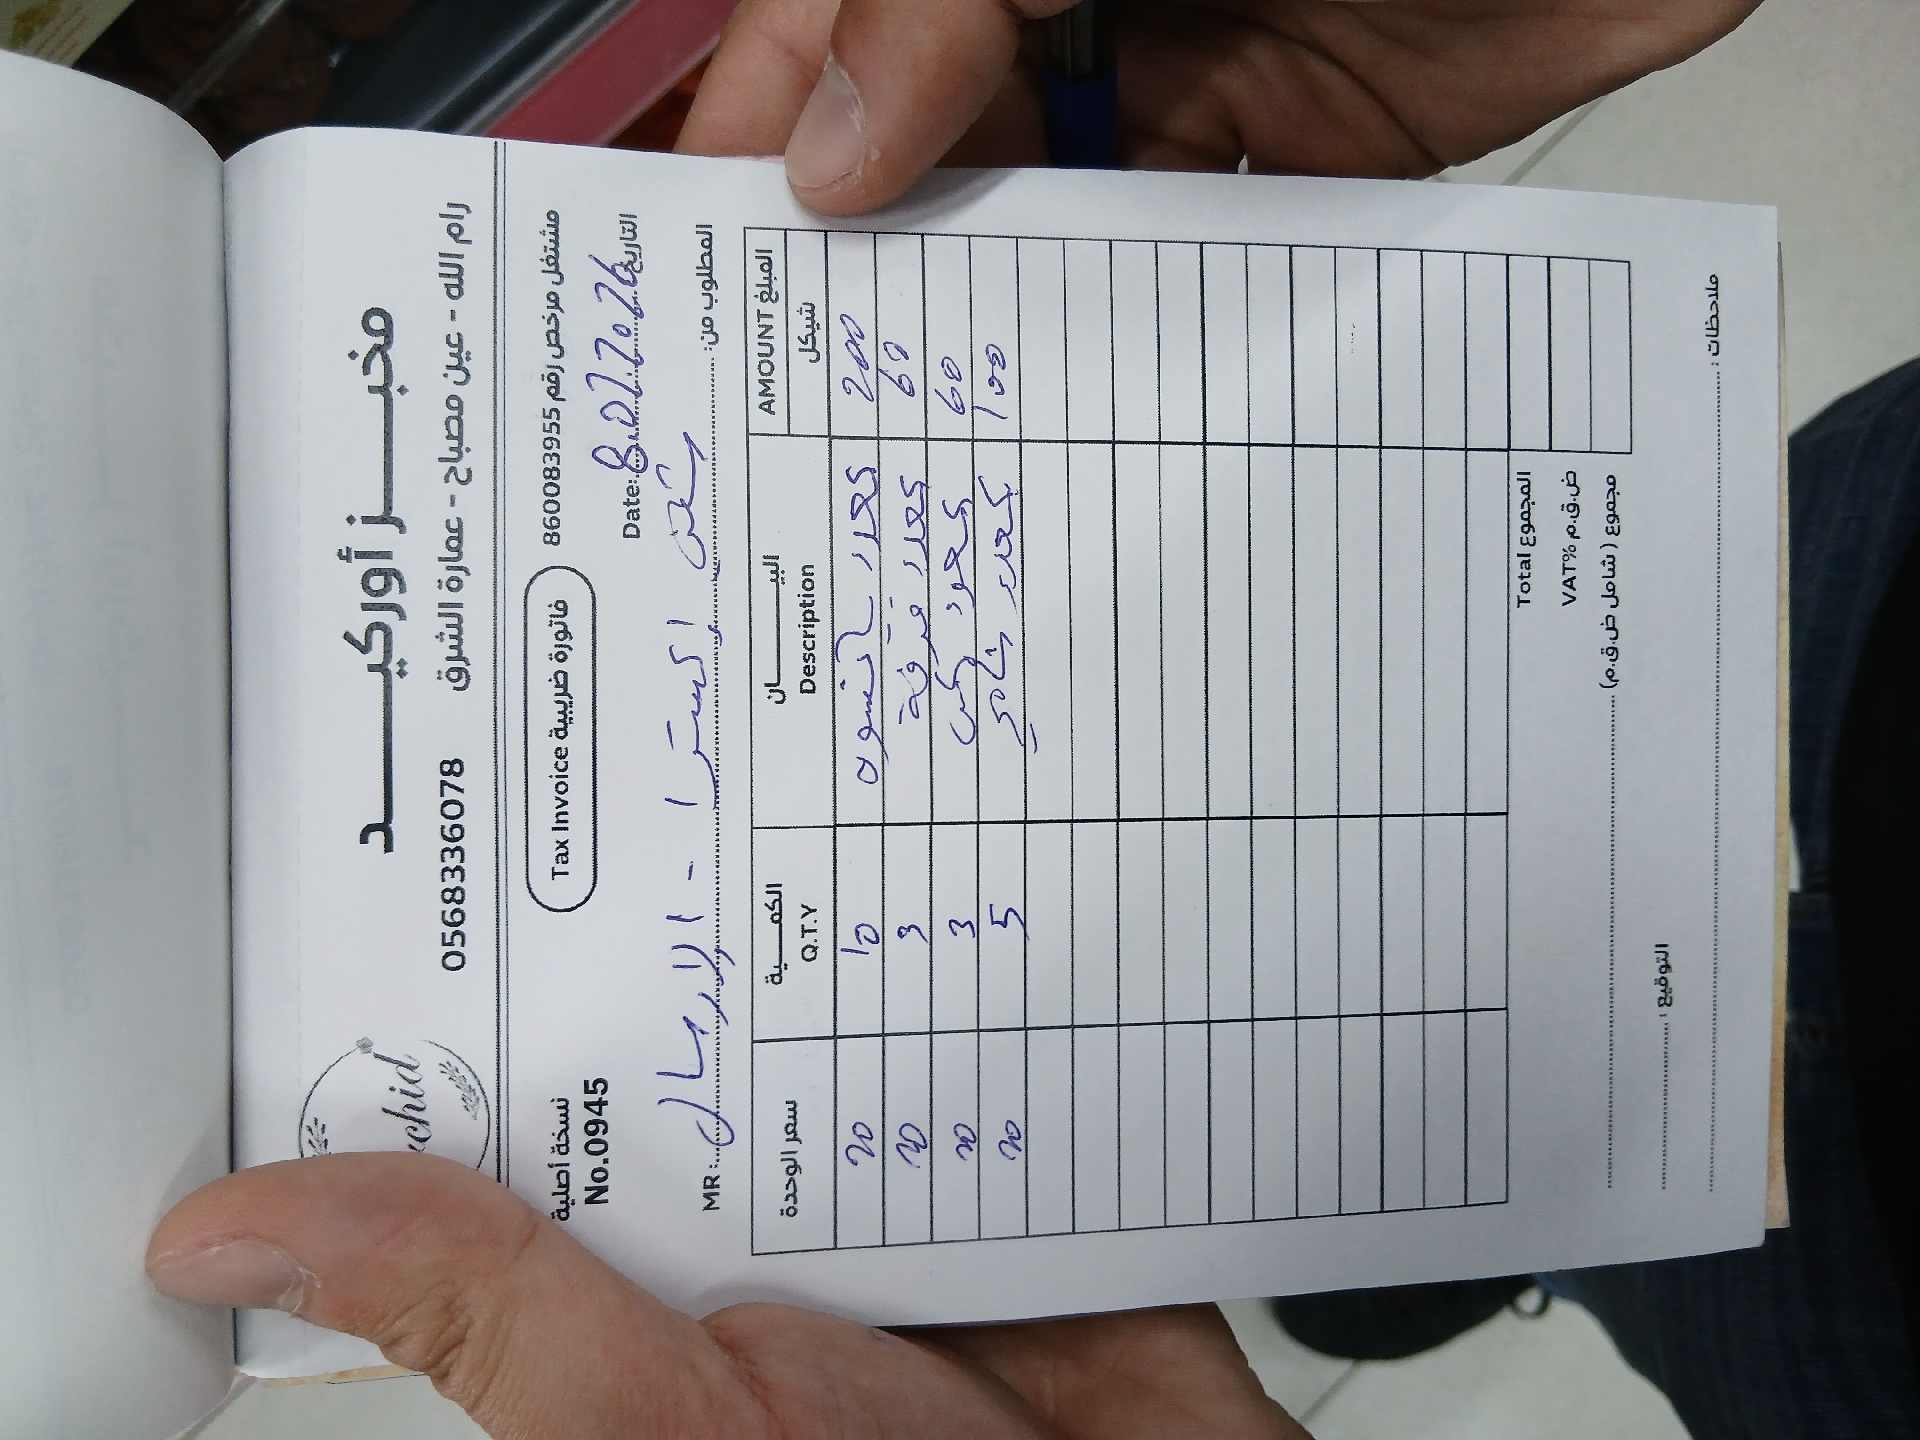 مخبز أوركيد
رام الله - عين مصباح - عمارة الشرق
0568336078
chid
مشتغل مرخص رقم 860083955
فاتورة ضريبية Tax Invoice
نسخة أصلية
No.0945
التاريخ Date: 8.02.2026
المطلوب من: الارسال - MR:
المبلغ AMOUNT البيــــان الكمــــية سعر الوحدة
شيكل Description Q.T.Y
200 كعك 10 20
60 كعك قرفة 3 20
60 3 20
100 5 20
المجموع Total
ض.ق.م VAT%
مجموع (شامل ض.ق.م)
التوقيع :
ملاحظات :